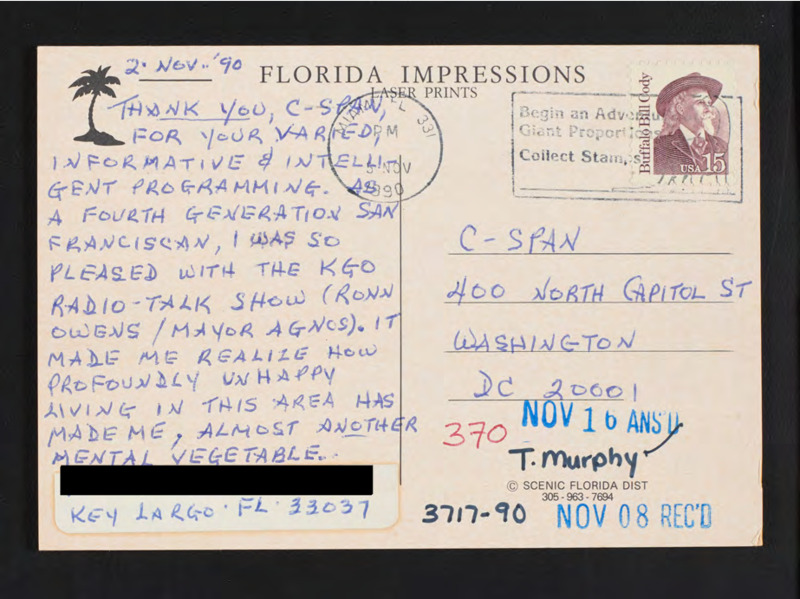 2. NOV. '90
FLORIDA IMPRESSIONS
LASER PRINTS
THANK YOU, C-SPAN,
FOR YOUR VARIED,
INFORMATIVE & INTELLI-
GENT PROGRAMMING. AS
A FOURTH GENERATION SAN
FRANCISCAN, I WAS SO
PLEASED WITH THE KGO
RADIO-TALK SHOW (RONN
OWENS / MAYOR AGNOS). IT
MADE ME REALIZE HOW
PROFOUNDLY UNHAPPY
LIVING IN THIS AREA HAS
MADE ME, ALMOST ANOTHER
MENTAL VEGETABLE.
KEY LARGO · FL · 33037
MIAMI FL 331
PM
5 NOV
1990
Begin an
Giant
Collect Stamps
Buffalo Bill Cody
USA 15
C-SPAN
400 NORTH CAPITOL ST
WASHINGTON
DC 20001
370
NOV 16 ANS'D
T. Murphy
© SCENIC FLORIDA DIST
305-963-7694
3717-90
NOV 08 REC'D